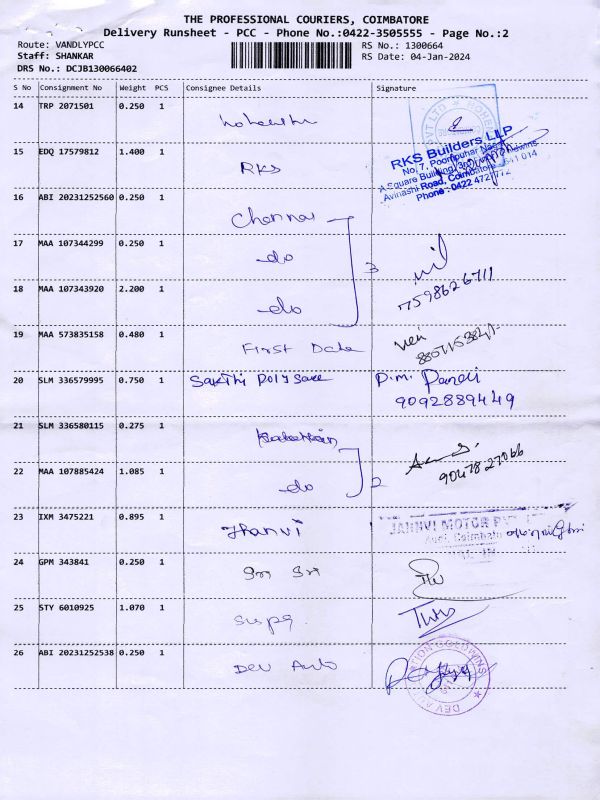 THE PROFESSIONAL COURIERS, COIMBATORE
Delivery Runsheet - PCC - Phone No.:0422-3505555 - Page No.:2
Route: VANDLYPCC RS No.: 1300664
Staff: SHANKAR RS Date: 04-Jan-2024
DRS No.: DCJB130066402
S No Consignment No Weight PCS Consignee Details Signature
14 TRP 2071501 0.250 1
15 EDQ 17579812 1.400 1 RKS
RKS Builders LLP
No. 7, Poompuhar Nagar
A Square Building, 3rd
Avinashi Road, Coimbatore 641 014
Phone : 0422 4721772
16 ABI 20231252560 0.250 1 Chennai
17 MAA 107344299 0.250 1 -do 3
18 MAA 107343920 2.200 1 -do 7598626711
19 MAA 573835158 0.480 1 First Date
20 SLM 336579995 0.750 1 Sakthi Poly Sace P.M. Pandi
9092889449
21 SLM 336580115 0.275 1
22 MAA 107885424 1.085 1 -do 2 9047827066
23 IXM 3475221 0.895 1 Jhanvi JAHNVI MOTOR
24 GPM 343841 0.250 1 Sri Sri
25 STY 6010925 1.070 1
26 ABI 20231252538 0.250 1 Dev Auto